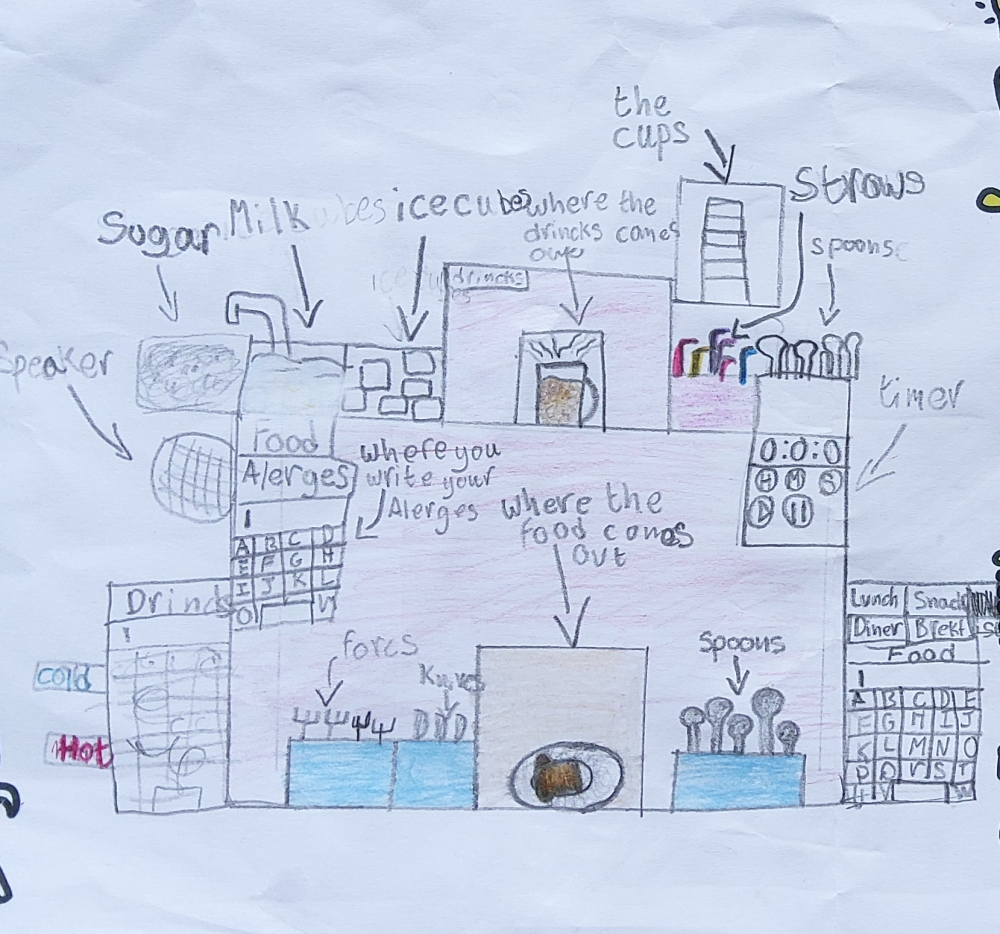 the
cups
Straws
Sugar
Milk
ice cubes
where the
drincks comes
spoons
drincks
Speaker
timer
Food
Alerges
where you
write your
Alerges
where the
food comes
out
0:0:0
H M S
A B C D
E F G H
I J K L
Drincks
Lunch Snack
Diner Brekt
Food
cold
Hot
forcs
Knives
Spoons
A B C D E
F G H I J
K L M N O